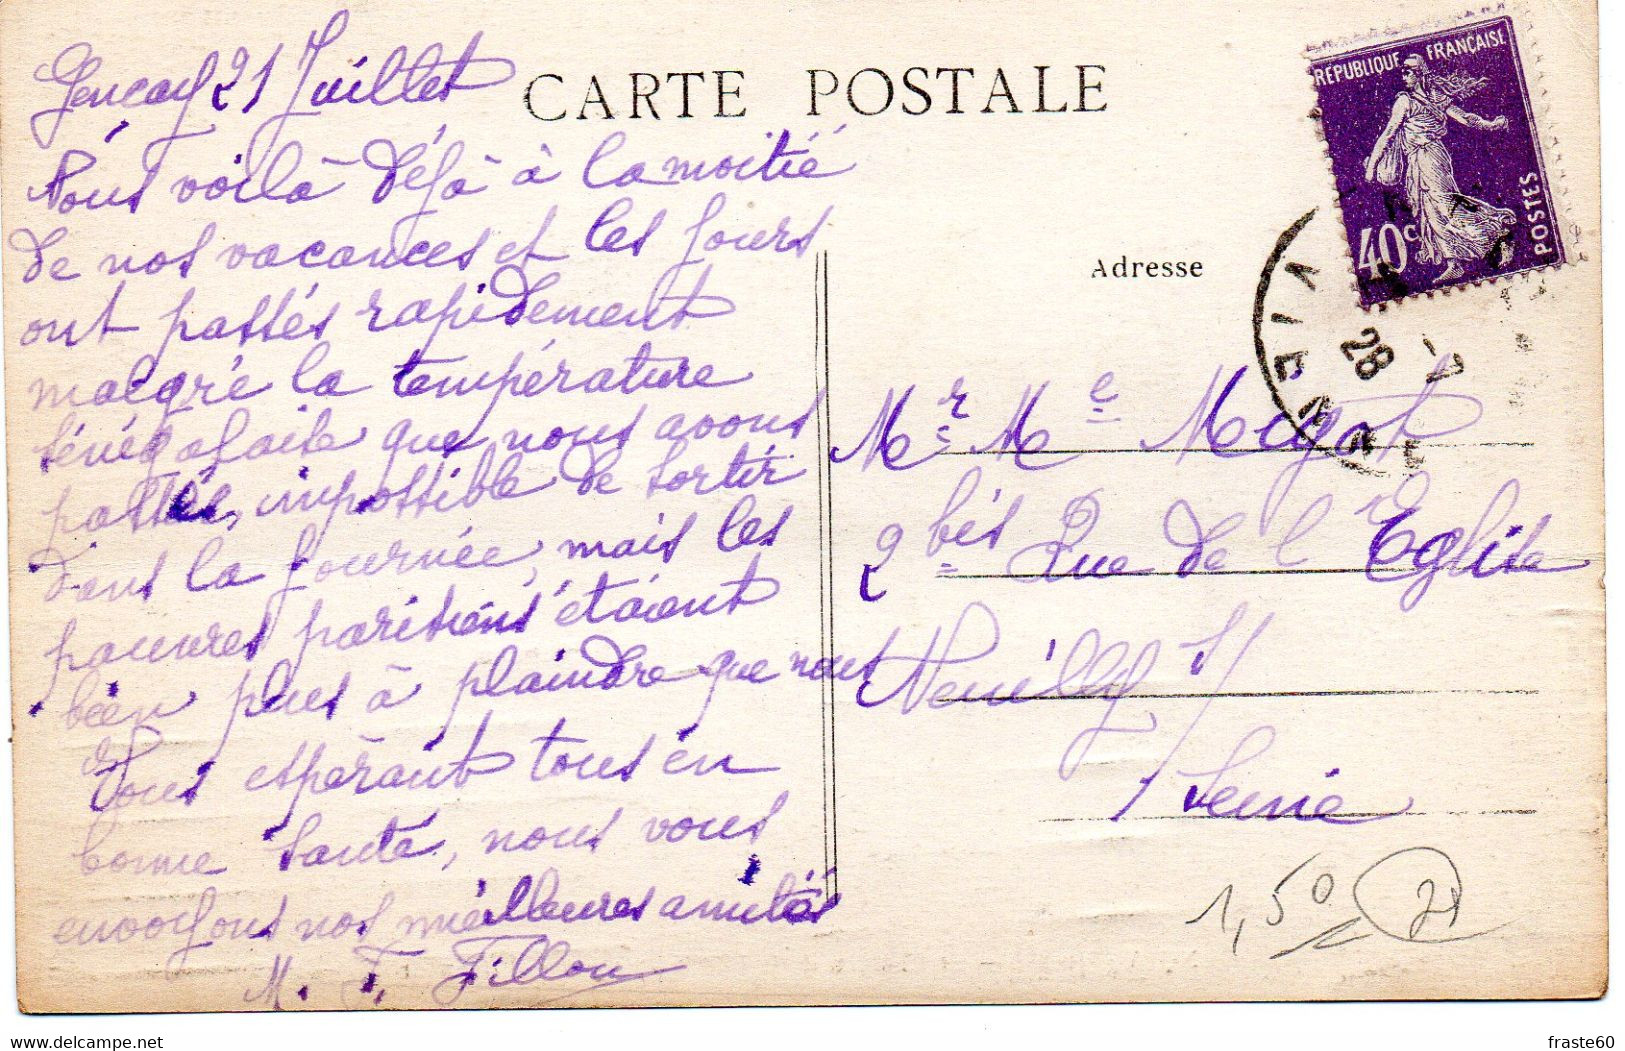 CARTE POSTALE
Gençay 21 Juillet
Nous voilà déjà à la moitié
de nos vacances et les jours
ont passés rapidement
malgré la température
sénégalaise que nous avons
passée, impossible de sortir
dans la journée, mais les
pauvres parisiens étaient
bien plus à plaindre que nous
Vous espérant tous en
bonne santé, nous vous
envoyons nos meilleures amitiés
M. F. Fillon
RÉPUBLIQUE FRANÇAISE
40c
POSTES
VIENNE
-7
28
Adresse
Mr Me Migot
2 bis Rue de l Eglise
Neuilly s/
Seine
1,50
21
www.delcampe.net
fraste60